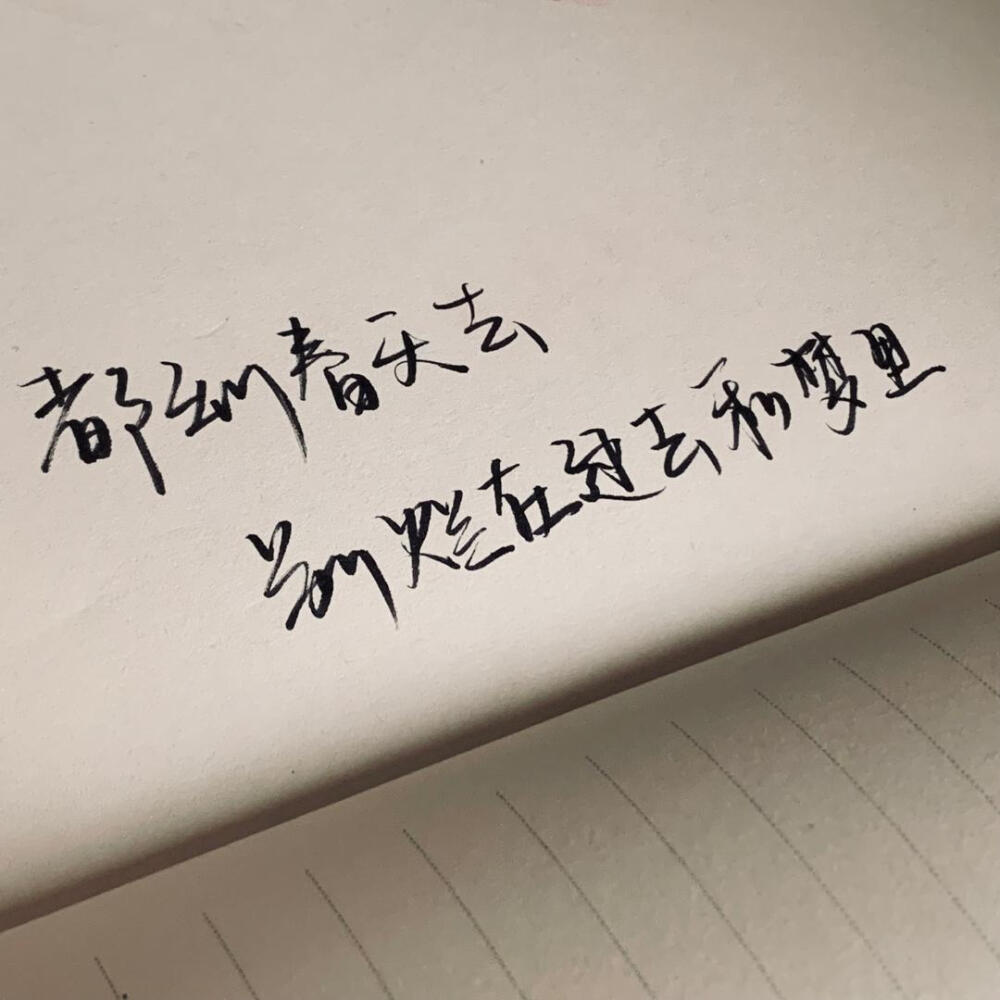 都到春天去
别烂在过去和梦里